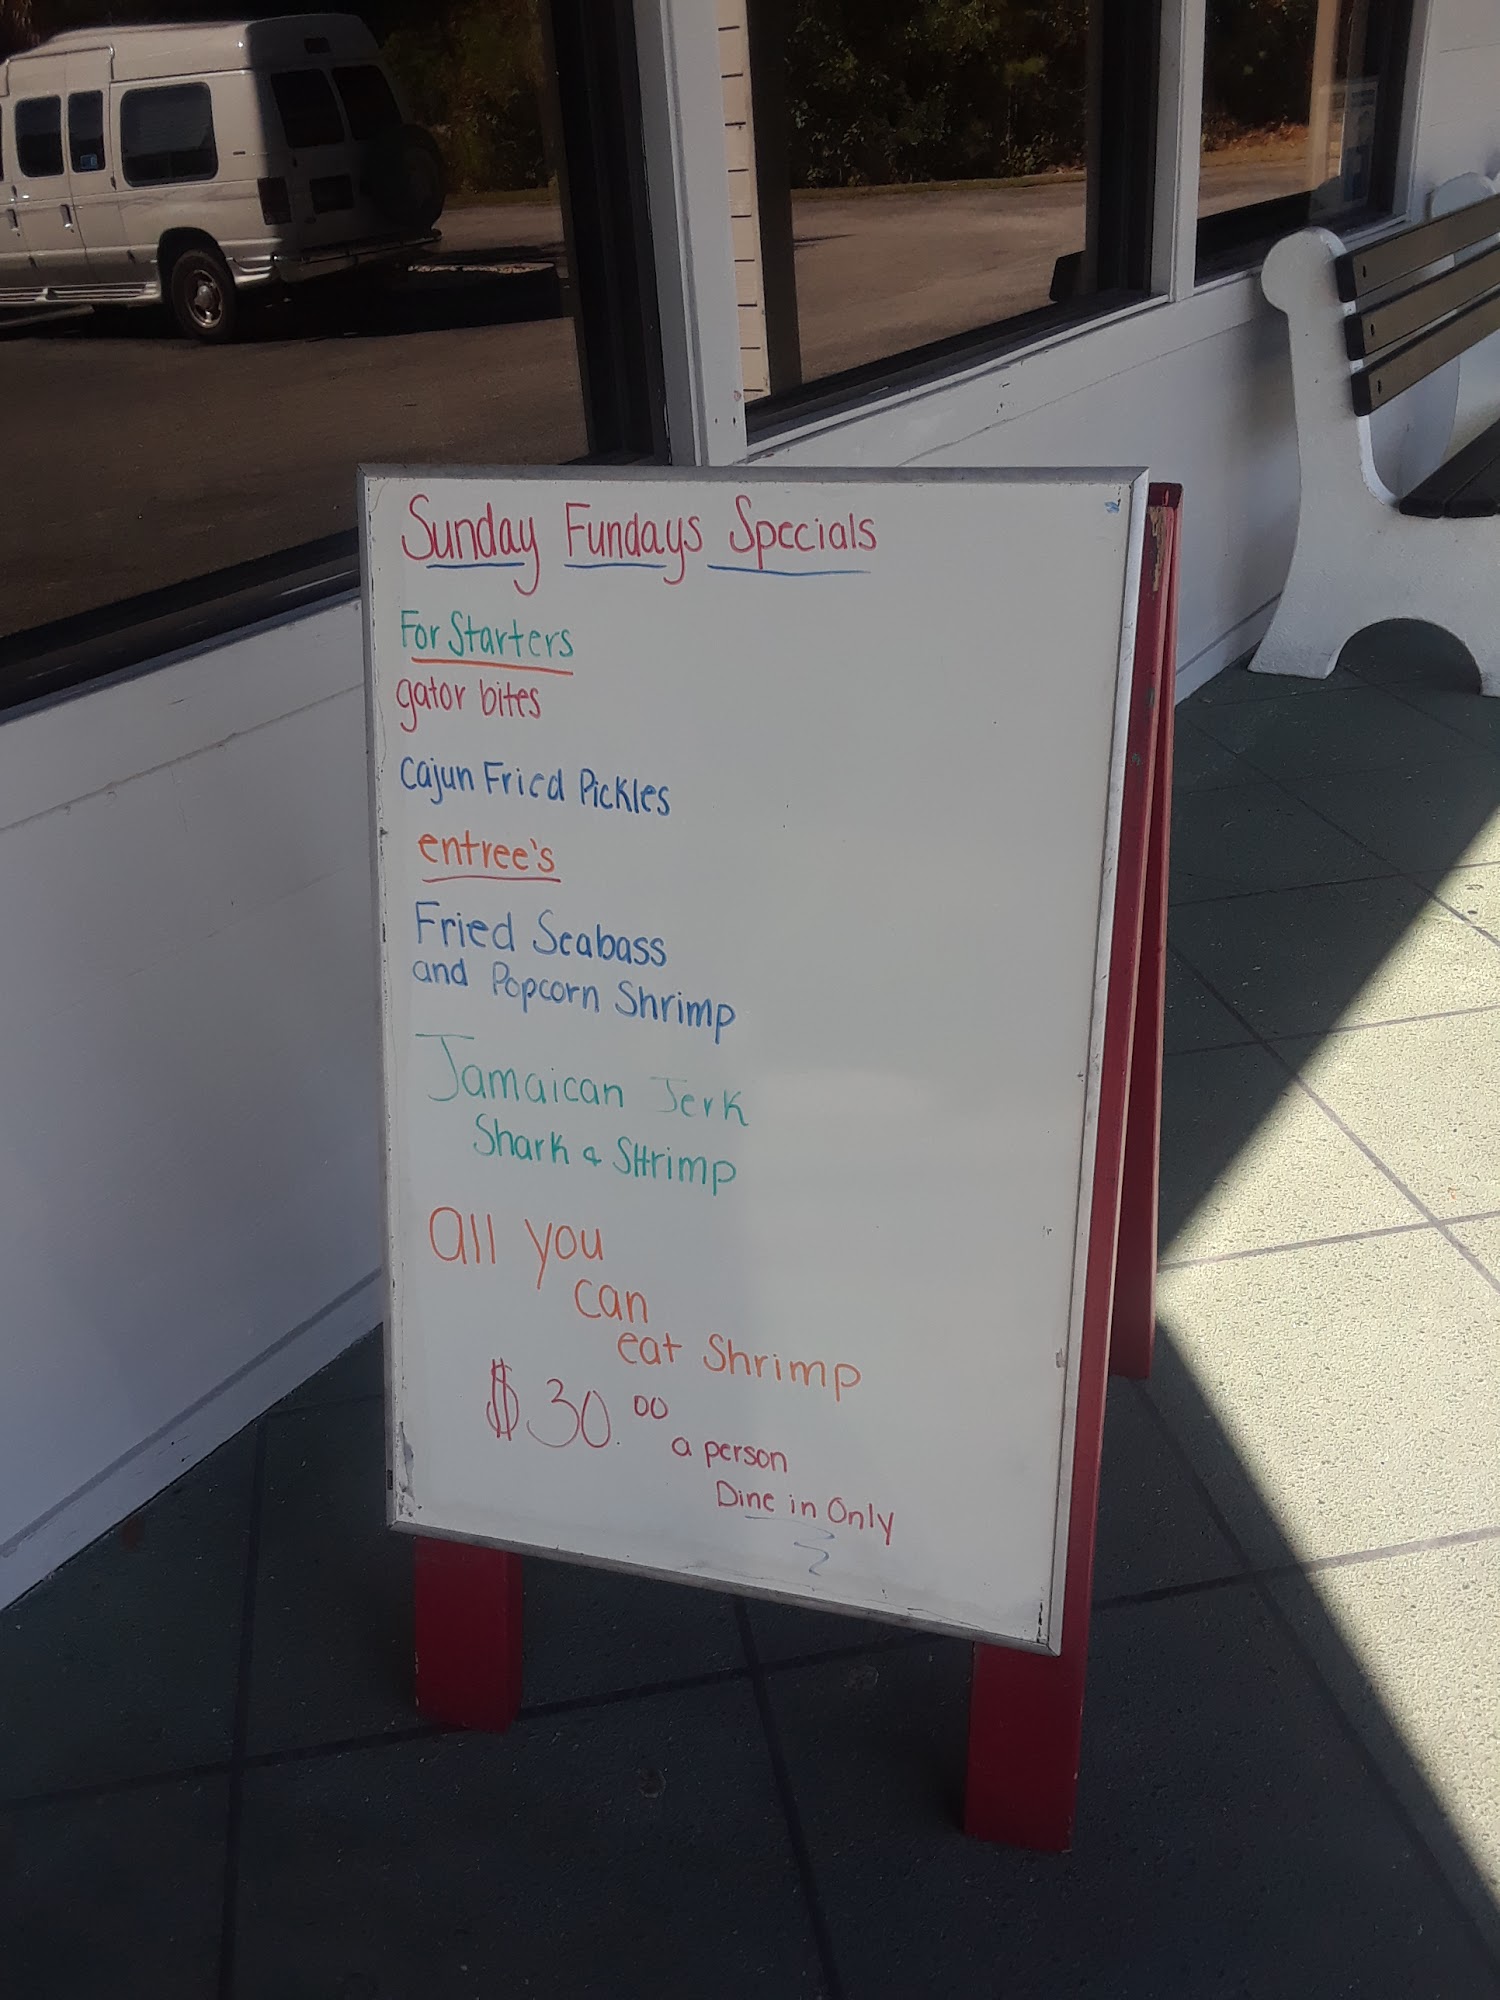 Sunday Fundays Specials
For Starters
gator bites
Cajun Fried Pickles
entree's
Fried Seabass
and Popcorn Shrimp
Jamaican Jerk
Shark & SHrimp
all you
can
eat Shrimp
$30.00
a person
Dine in Only